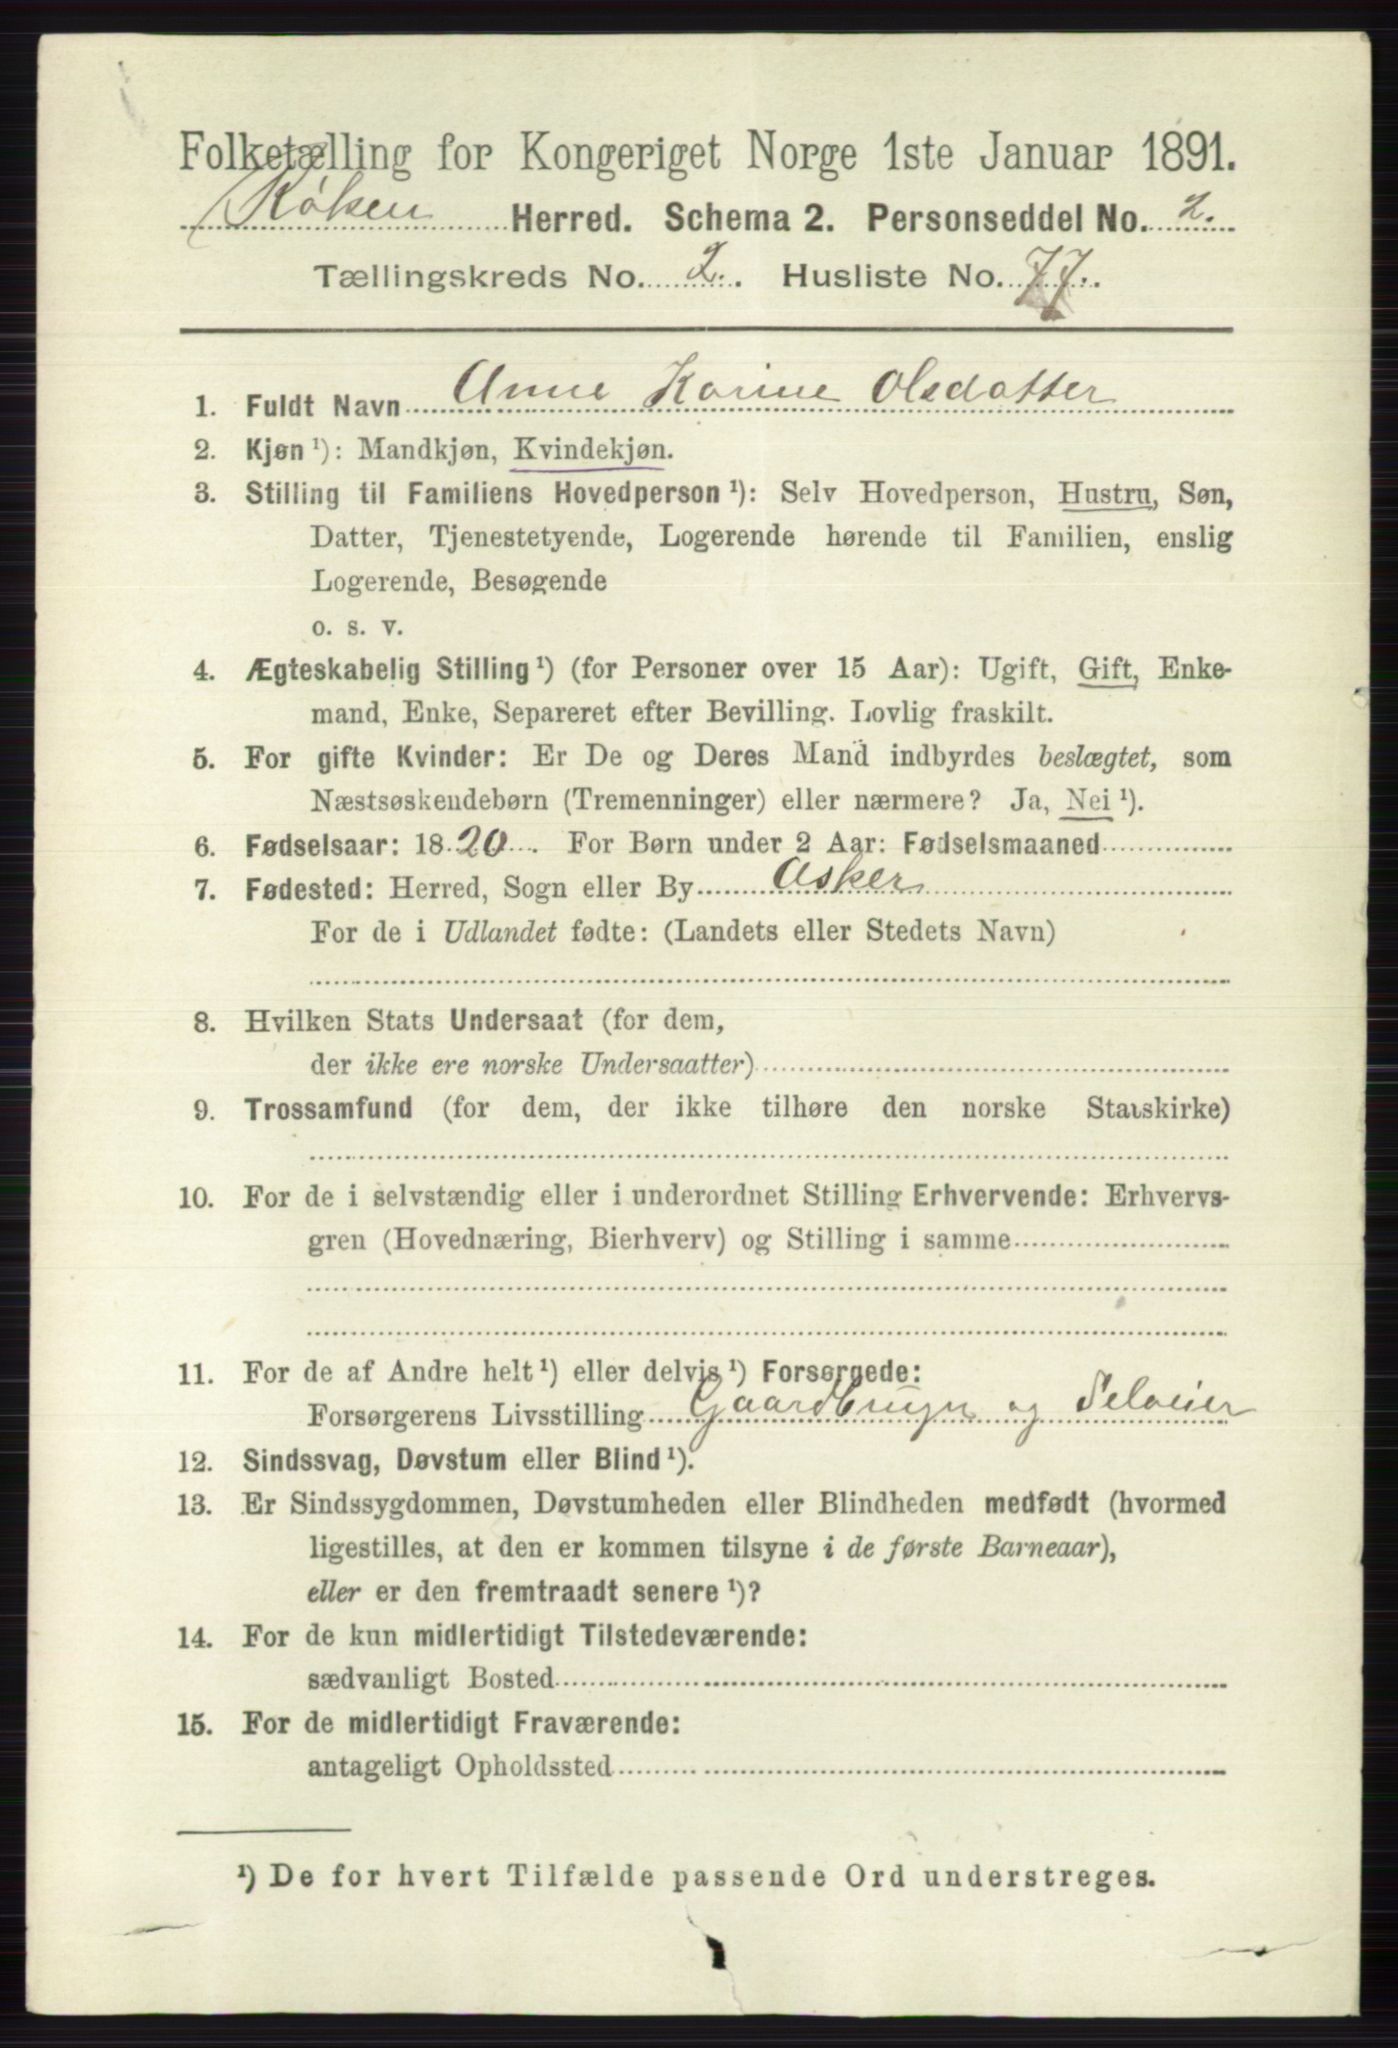 Folketælling for Kongeriget Norge 1ste Januar 1891.
Røken Herred. Schema 2. Personseddel No. 2.
Tællingskreds No. 2. Husliste No. 77.
1. Fuldt Navn Anne Karine Olsdatter
2. Kjøn ¹): Mandkjøn, Kvindekjøn.
3. Stilling til Familiens Hovedperson ¹): Selv Hovedperson, Hustru, Søn,
Datter, Tjenestetyende, Logerende hørende til Familien, enslig
Logerende, Besøgende
o. s. v.
4. Ægteskabelig Stilling ¹) (for Personer over 15 Aar): Ugift, Gift, Enke-
mand, Enke, Separeret efter Bevilling. Lovlig fraskilt.
5. For gifte Kvinder: Er De og Deres Mand indbyrdes beslægtet, som
Næstsøskendebørn (Tremenninger) eller nærmere? Ja, Nei ¹).
6. Fødselsaar: 1820. For Børn under 2 Aar: Fødselsmaaned
7. Fødested: Herred, Sogn eller By Asker
For de i Udlandet fødte: (Landets eller Stedets Navn)
8. Hvilken Stats Undersaat (for dem,
der ikke ere norske Undersaatter)
9. Trossamfund (for dem, der ikke tilhøre den norske Statskirke)
10. For de i selvstændig eller i underordnet Stilling Erhvervende: Erhvervs-
gren (Hovednæring, Bierhverv) og Stilling i samme
11. For de af Andre helt ¹) eller delvis ¹) Forsørgede:
Forsørgerens Livsstilling Gaardbruger og Seleier
12. Sindssvag, Døvstum eller Blind ¹).
13. Er Sindssygdommen, Døvstumheden eller Blindheden medfødt (hvormed
ligestilles, at den er kommen tilsyne i de første Barneaar),
eller er den fremtraadt senere ¹)?
14. For de kun midlertidigt Tilstedeværende:
sædvanligt Bosted
15. For de midlertidigt Fraværende:
antageligt Opholdssted
¹) De for hvert Tilfælde passende Ord understreges.